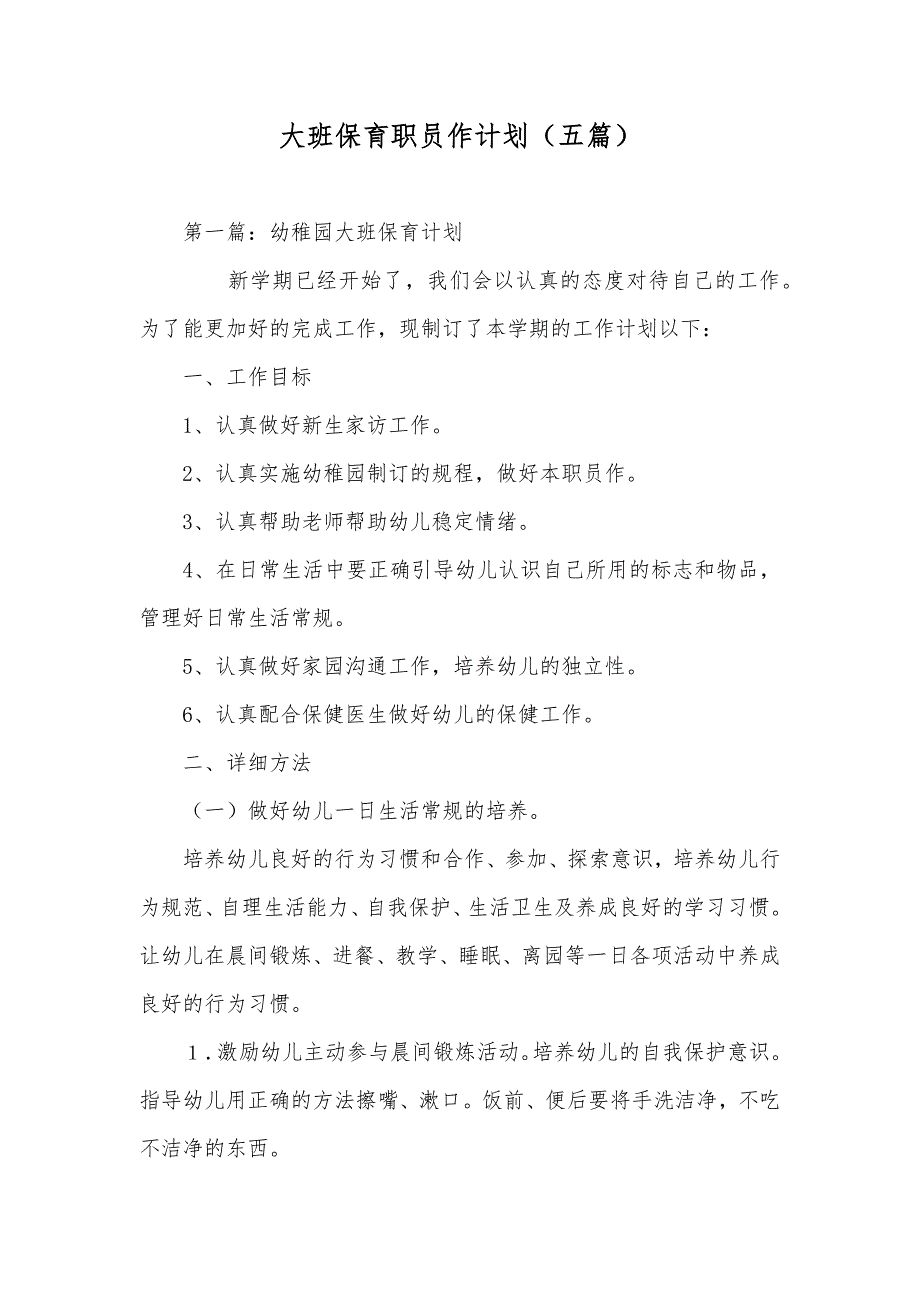 大班保育职员作计划（五篇）
第一篇：幼稚园大班保育计划
新学期已经开始了，我们会以认真的态度对待自己的工作。
为了能更加好的完成工作，现制订了本学期的工作计划以下：
一、工作目标
1、认真做好新生家访工作。
2、认真实施幼稚园制订的规程，做好本职员作。
3、认真帮助老师帮助幼儿稳定情绪。
4、在日常生活中要正确引导幼儿认识自己所用的标志和物品，
管理好日常生活常规。
5、认真做好家园沟通工作，培养幼儿的独立性。
6、认真配合保健医生做好幼儿的保健工作。
二、详细方法
（一）做好幼儿一日生活常规的培养。
培养幼儿良好的行为习惯和合作、参加、探索意识，培养幼儿行
为规范、自理生活能力、自我保护、生活卫生及养成良好的学习习惯。
让幼儿在晨间锻炼、进餐、教学、睡眠、离园等一日各项活动中养成
良好的行为习惯。
１.激励幼儿主动参与晨间锻炼活动。培养幼儿的自我保护意识。
指导幼儿用正确的方法擦嘴、漱口。饭前、便后要将手洗洁净，不吃
不洁净的东西。